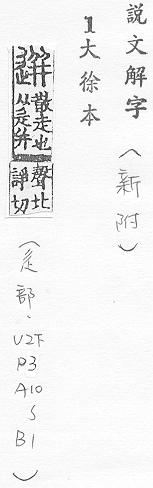 説文解字（新附）
1大徐本
迸
散走也
从辵并
聲北
諍切
（辵部·V2下 P3 A10 S B1）